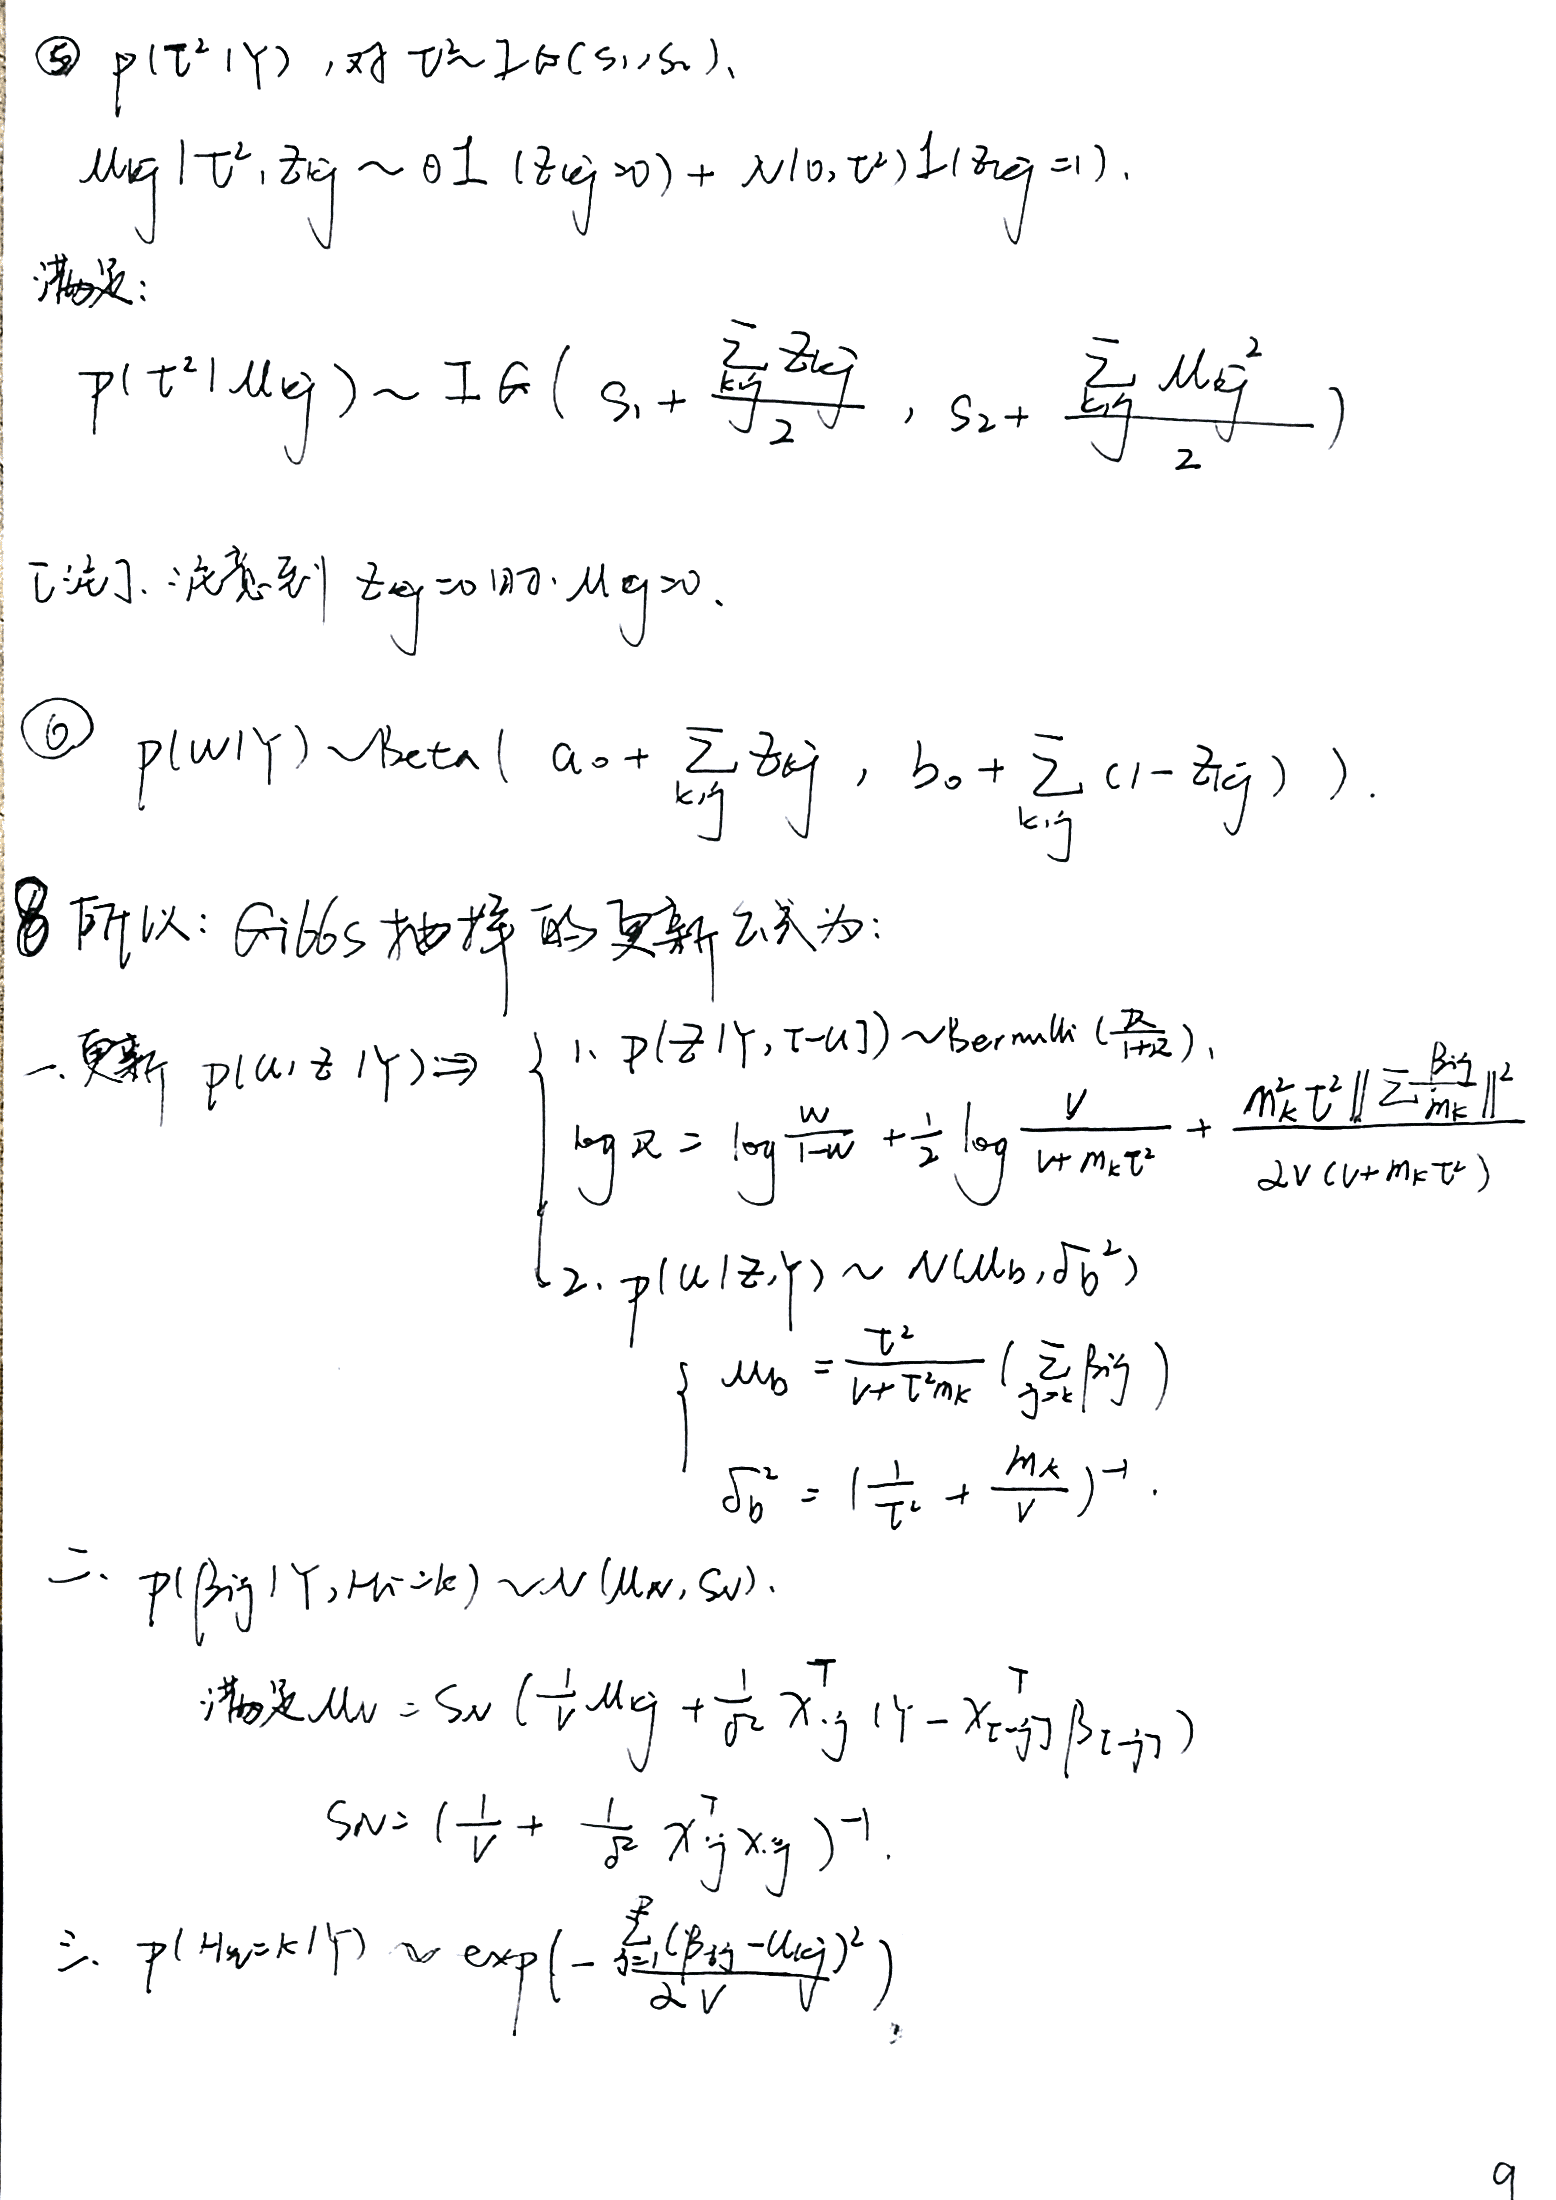 ⑤ p(τ²|Y), 对 τ²~IG(S₁,S₂).
μ_kj|τ², Z_kj ~ 0 1(Z_kj=0) + N(0,τ²)1(Z_kj=1).
满足:
p(τ²|μ_kj) ~ IG( S₁ + Σ_{k,j} Z_kj / 2 , S₂ + Σ_{k,j} μ_kj² / 2 )
[注]. 注意到 Z_kj=0时. μ_kj=0.
⑥ p(w|Y) ~ Beta( a₀ + Σ_{k,j} Z_kj , b₀ + Σ_{k,j} (1-Z_kj) ).
8 所以: Gibbs 抽样的更新公式为:
一. 更新 p(u,z|Y) ⇒ { 1. p(z|Y,[-u]) ~ Bernulli (R/(1+R)),
log R = log w/(1-w) + 1/2 log v/(v+m_kτ²) + m_k²τ²‖Σ β_ij/m_k‖² / 2v(v+m_kτ²)
2. p(u|z,Y) ~ N(μ_b, σ_b²)
{ μ_b = τ²/(v+τ²m_k) (Σ_{j=k} β_ij)
σ_b² = (1/τ² + m_k/v)⁻¹.
二. p(β_ij|Y,H_i=k) ~ N(μ_N, S_N).
满足 μ_N = S_N (1/v μ_kj + 1/σ² X_·j^T (Y - X_[-j]^T β_[-j])
S_N = (1/v + 1/σ² X_·j^T X_·j)⁻¹.
三. p(H_i=k|Y) ~ exp(- Σ_{j=1}^P (β_ij - u_kj)² / 2v)
9